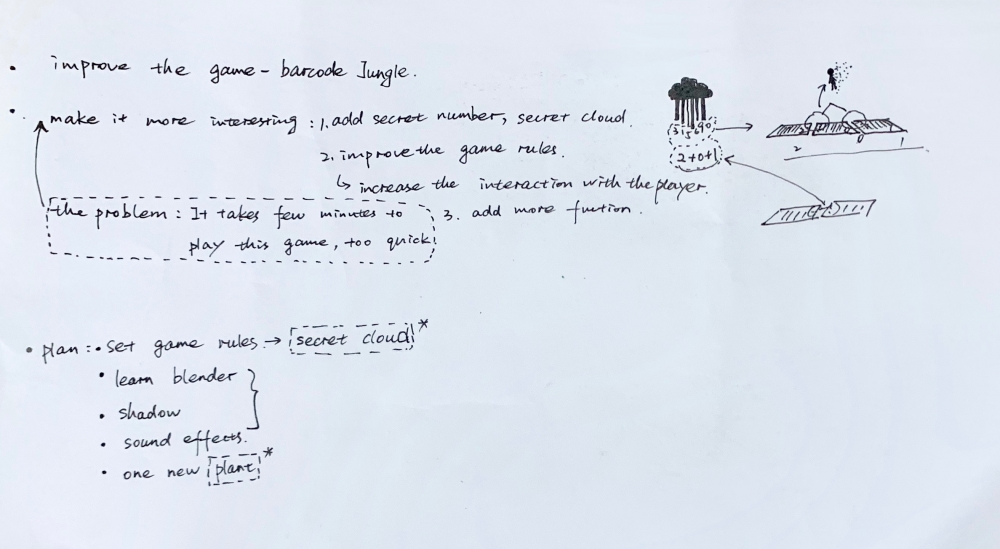 improve the game - barcode Jungle.
make it more interesting : 1. add secret number, secret cloud.
2. improve the game rules.
↳ increase the interaction with the player.
the problem : It takes few minutes to
play this game, too quick.
3. add more fuction.
2+0+1
2 0 1
plan : • set game rules. → secret cloud *
• learn blender
• shadow
• sound effects.
• one new plant *